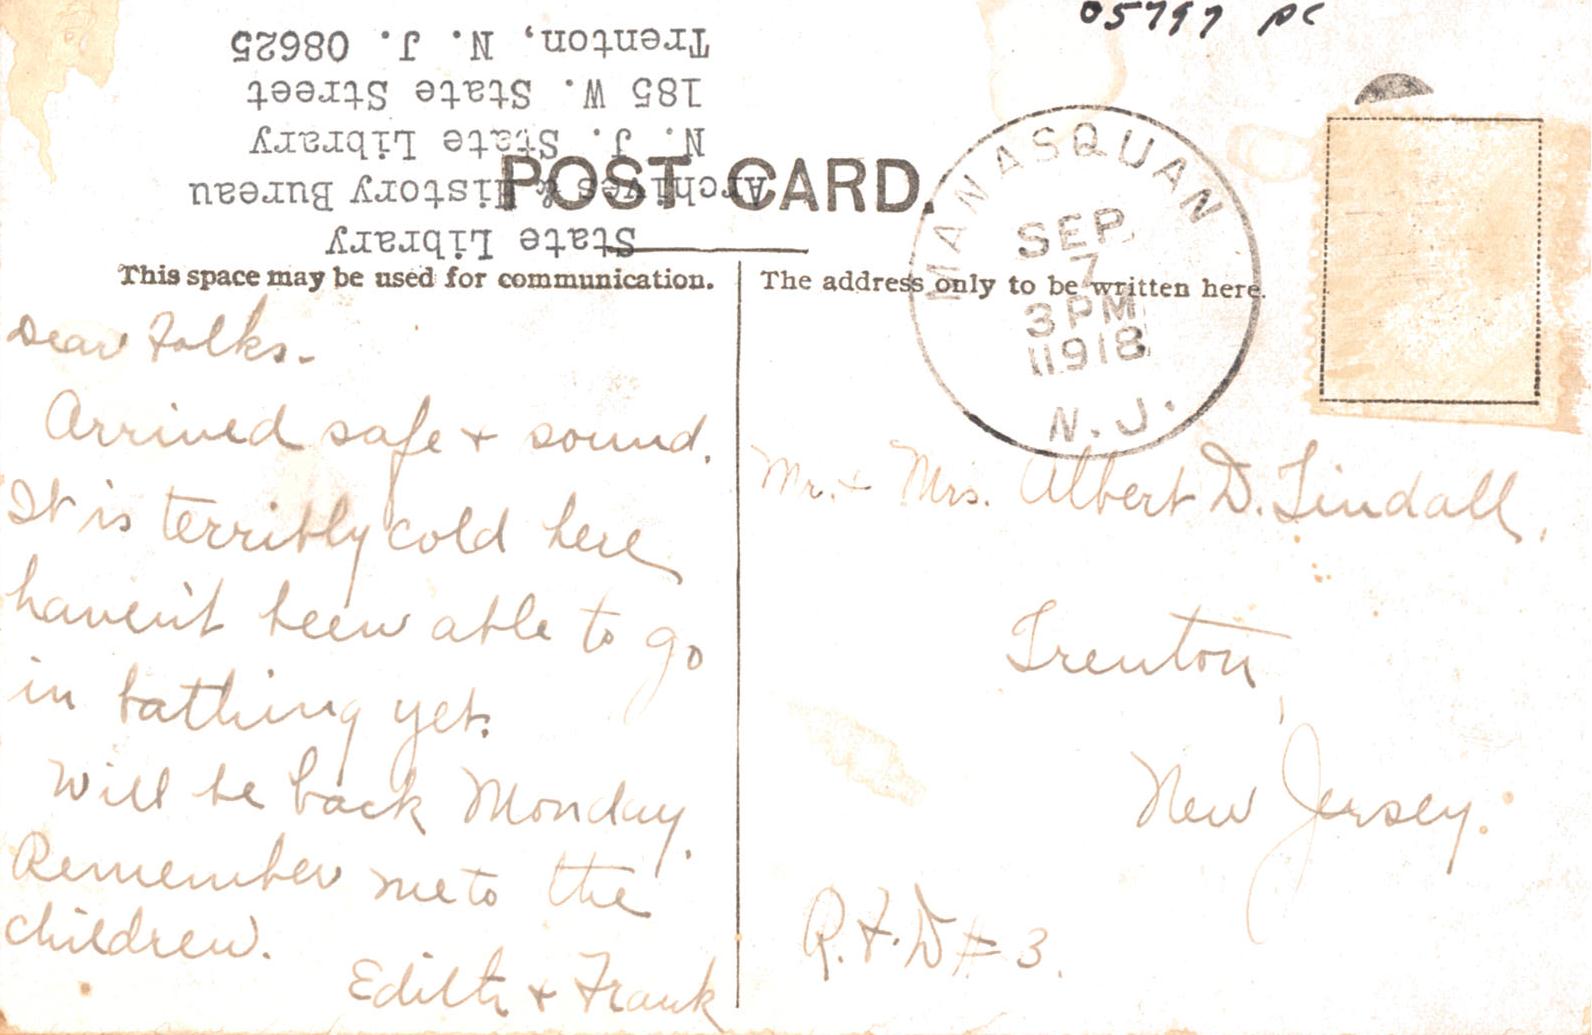 05797 PC
State Library
Archives & History Bureau
N. J. State Library
185 W. State Street
Trenton, N. J. 08625
POST CARD.
MANASQUAN
SEP
7
3 PM
1918
N.J.
This space may be used for communication.
The address only to be written here.
Dear Folks.-
Arrived safe + sound.
It is terribly cold here
haven't been able to go
in bathing yet.
Will be back Monday.
Remember me to the
children.
Edith + Frank
Mr. + Mrs. Albert D. Tindall,
Trenton,
New Jersey.
R.F.D # 3.